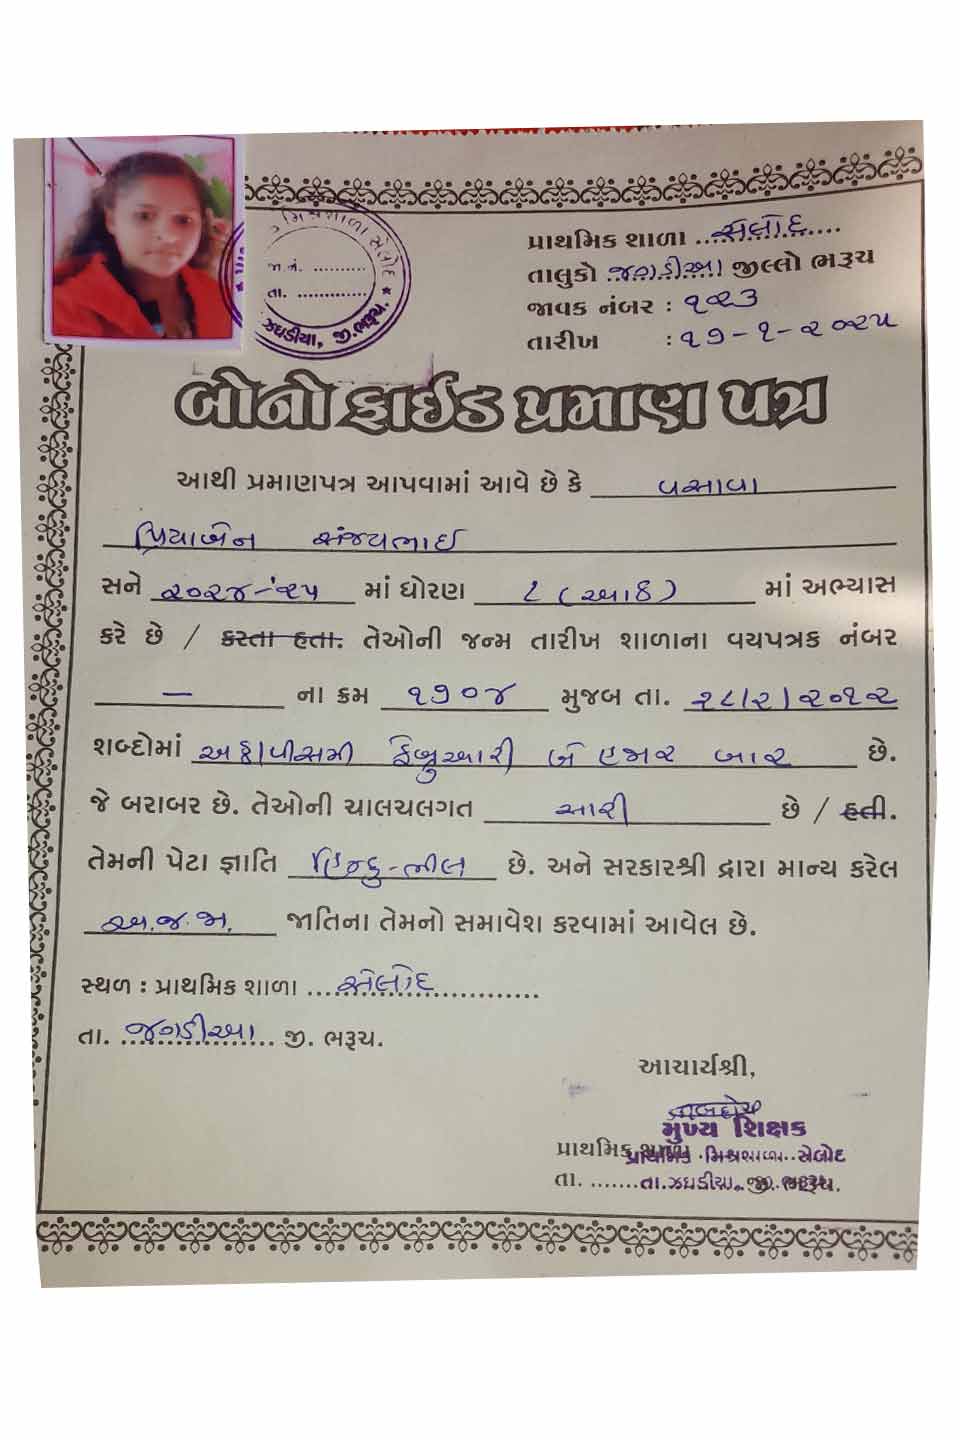 પ્રાથમિક શાળા સેલોદ
તાલુકો જગડીઆ જીલ્લો ભરૂચ
જાવક નંબર : ૧૨૩
તારીખ : ૧૭-૧-૨૦૨૫
મિશ્રશાળા સેલોદ
જા.નં. ............
તા. ..............
ઝઘડીયા, જી.ભરૂચ.
બોનોફાઈડ પ્રમાણ પત્ર
આથી પ્રમાણપત્ર આપવામાં આવે છે કે વસાવા
પ્રિયાબેન સંજયભાઈ
સને ૨૦૨૪-'૨૫ માં ધોરણ ૮ (આઠ) માં અભ્યાસ
કરે છે / કરતા હતા. તેઓની જન્મ તારીખ શાળાના વયપત્રક નંબર
— ના ક્રમ ૧૭૦૪ મુજબ તા. ૨૮/૨/૨૦૧૨
શબ્દોમાં અઠ્ઠાવીસમી ફેબ્રુઆરી બે હજાર બાર છે.
જે બરાબર છે. તેઓની ચાલચલગત સારી છે / હતી.
તેમની પેટા જ્ઞાતિ હિન્દુ-ભીલ છે. અને સરકારશ્રી દ્વારા માન્ય કરેલ
અ.જ.જા. જાતિના તેમનો સમાવેશ કરવામાં આવેલ છે.
સ્થળ : પ્રાથમિક શાળા સેલોદ
તા. જગડીઆ જી. ભરૂચ.
આચાર્યશ્રી,
મુખ્ય શિક્ષક
પ્રાથમિક શાળા
પ્રાથમિક મિશ્રશાળા સેલોદ
તા. .......તા.ઝઘડીયા, જી. ભરૂચ.